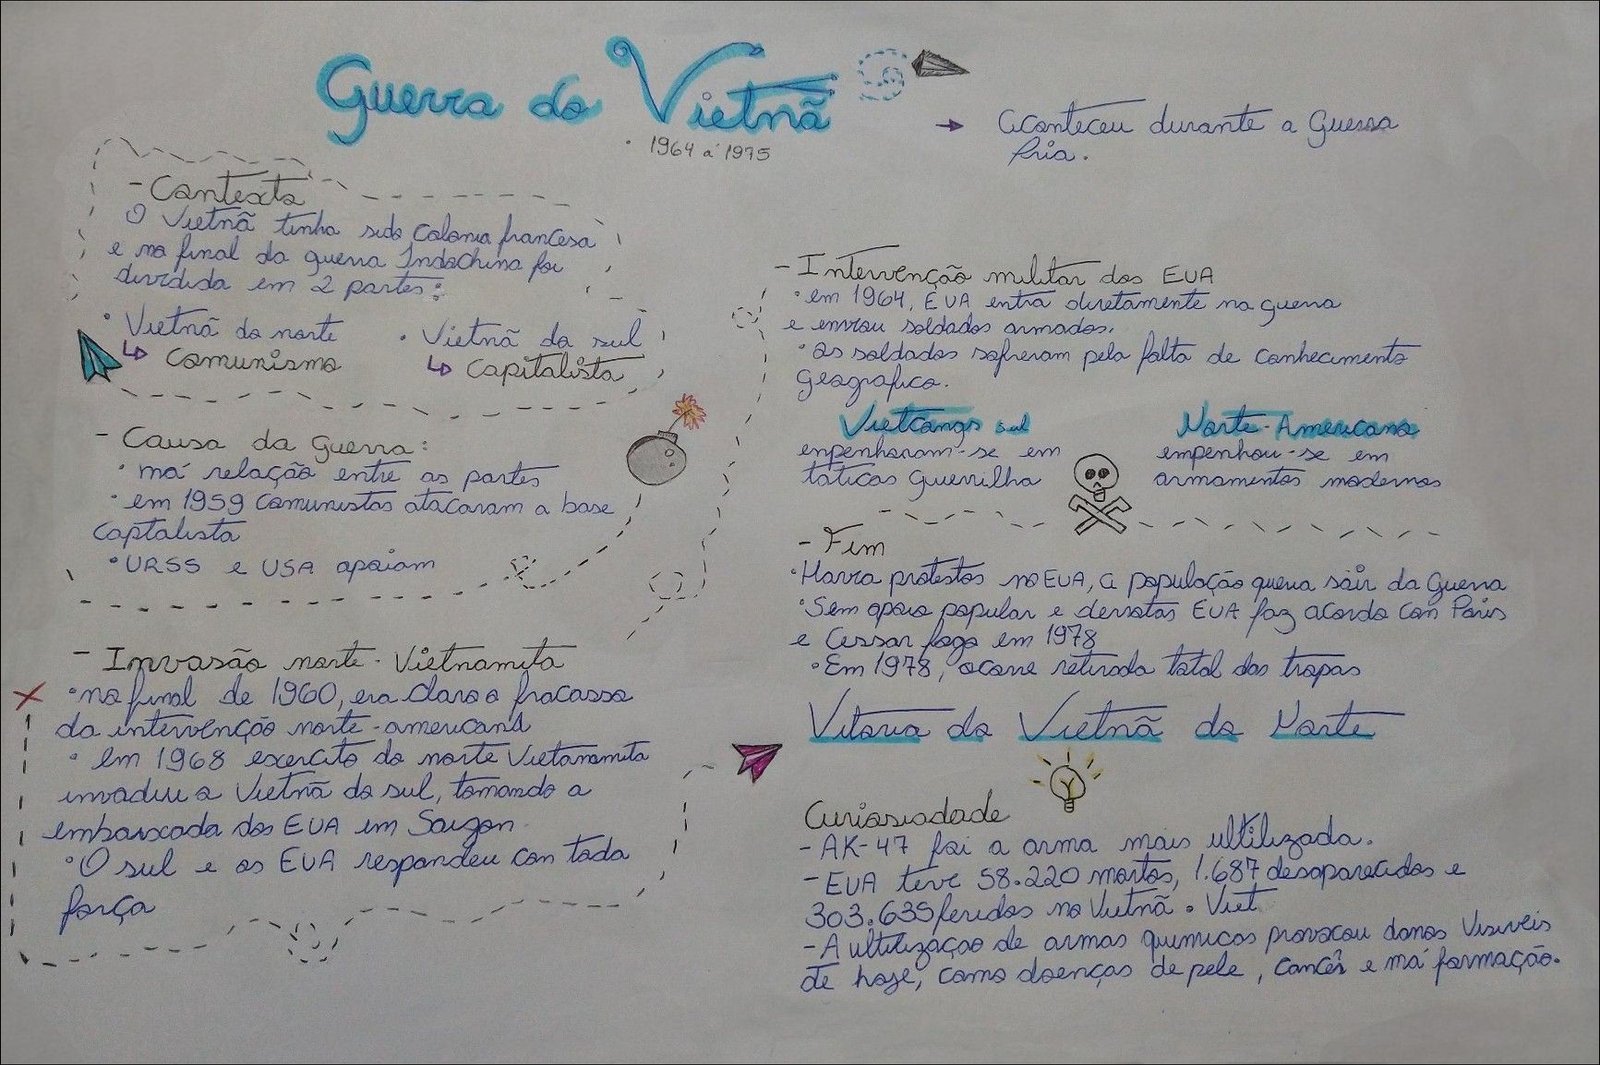 Guerra do Vietnã
• 1964 á 1975
→ Aconteceu durante a Guerra
fria.
- Contexto
O Vietnã tinha sido colonia francesa
e no final da guerra Indochina foi
dividida em 2 partes:
• Vietnã do norte
↳ Comunismo
• Vietnã do sul
↳ Capitalista
- Causa da Guerra:
• má relação entre as partes
• em 1959 comunistas atacaram a base
captalista
• URSS e USA apoiam
- Invasão norte-Vietnamita
• no final de 1960, era claro o fracasso
da intervenção norte-americana
• em 1968 exercito do norte Vietanamita
invadiu o Vietnã do sul, tomando a
embaixada dos EUA em Saigon
• O sul e os EUA respondeu con toda
força
- Intervenção militar dos EUA
• em 1964, EUA entra diretamente na guerra
e enviou soldados armados.
• os soldados sofreram pela falta de conhecimento
geografico.
Vietcongs sul
enpenharam-se em
táticas Guerrilha
Norte-Americano
empenhou-se em
armamentos modernos
- Fim
• Havia protestos no EUA, a população queria sair da Guerra
• Sem apoio popular e derrotas EUA faz acordo con Paris
e Cessar fogo em 1978
• Em 1978, ocorre retirada total das tropas
Vitoria do Vietnã do Norte
Curiosiodade
- AK-47 foi a arma mais ultilizada.
- EUA teve 58.220 mortos, 1.687 desaparecidos e
303.635 feridos no Vietnã. Viet
- A ultilização de armas quimicas provocou danos Visiveis
de hoje, como doenças de pele, cancêr e má formação.